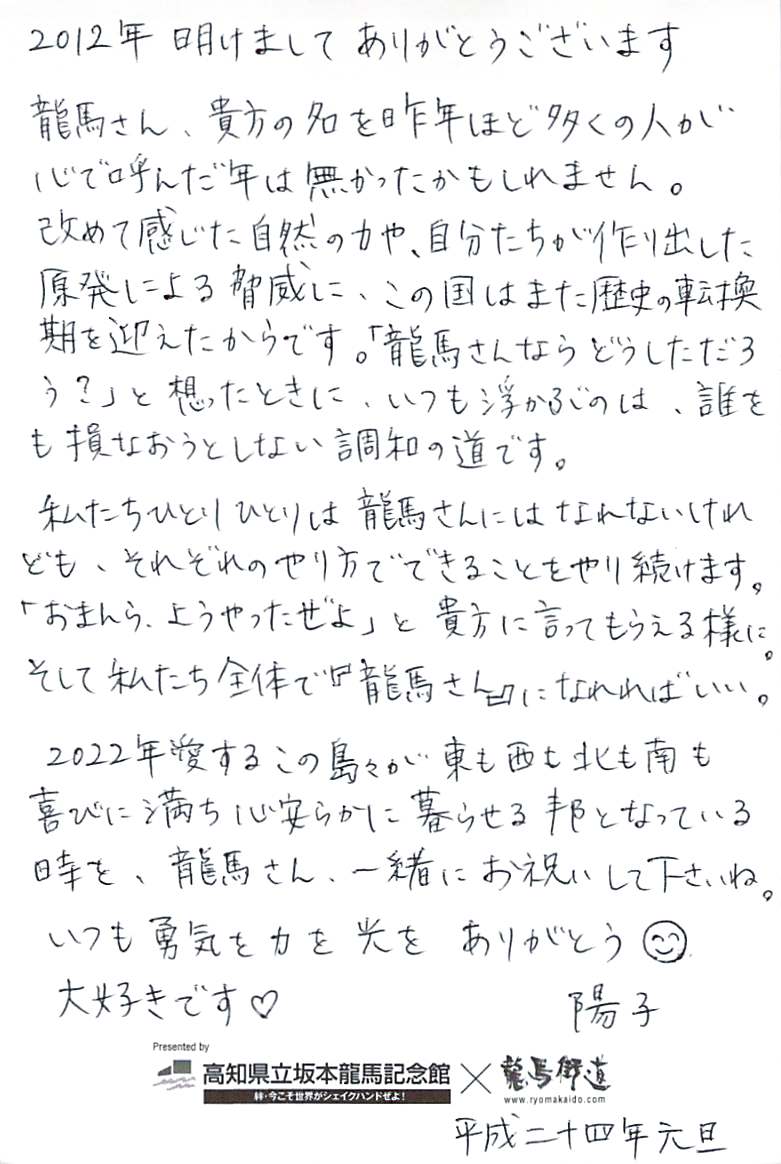 2012年 明けまして ありがとうございます
龍馬さん、貴方の名を昨年ほど多くの人が
心で呼んだ年は無かったかもしれません。
改めて感じた自然の力や、自分たちが作り出した
原発による脅威に、この国はまた歴史の転換
期を迎えたからです。「龍馬さんならどうしただろ
う?」と想ったときに、いつも浮かぶのは、誰を
も損なおうとしない調和の道です。
私たちひとりひとりは龍馬さんにはなれないけれ
ども、それぞれのやり方でできることをやり続けます。
「おまんら、ようやったぜよ」と貴方に言ってもらえる様に。
そして私たち全体で『龍馬さん』になれればいい。
2022年愛するこの島々が東も西も北も南も
喜びに満ち心安らかに暮らせる邦となっている
時を、龍馬さん、一緒にお祝いして下さいね。
いつも勇気を力を光を ありがとう
大好きです♡ 陽子
Presented by
高知県立坂本龍馬記念館 × 龍馬街道
絆・今こそ世界がシェイクハンドぜよ!
www.ryomakaido.com
平成二十四年元旦